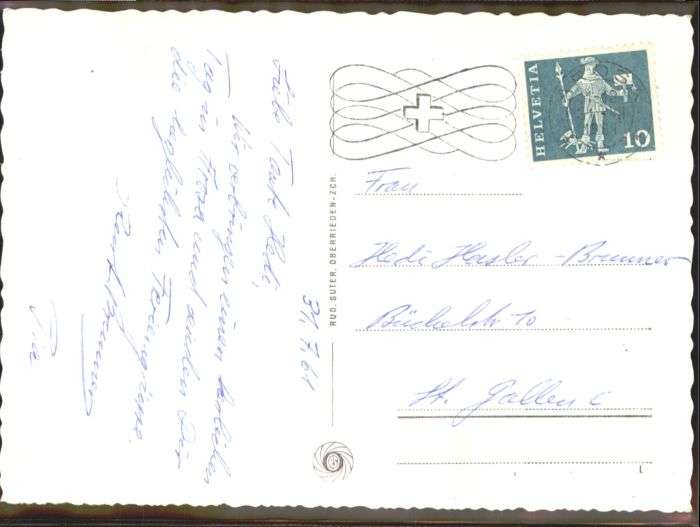 31.7.61
Liebe Tante Hedi,
Wir verbringen einen herrlichen
Tag in Arosa und senden Dir
die herzlichsten Feriengrüsse.
RUD. SUTER, OBERRIEDEN-ZCH.
HELVETIA
10
Frau
Hedi Hasler-Brunner
St. Gallen C